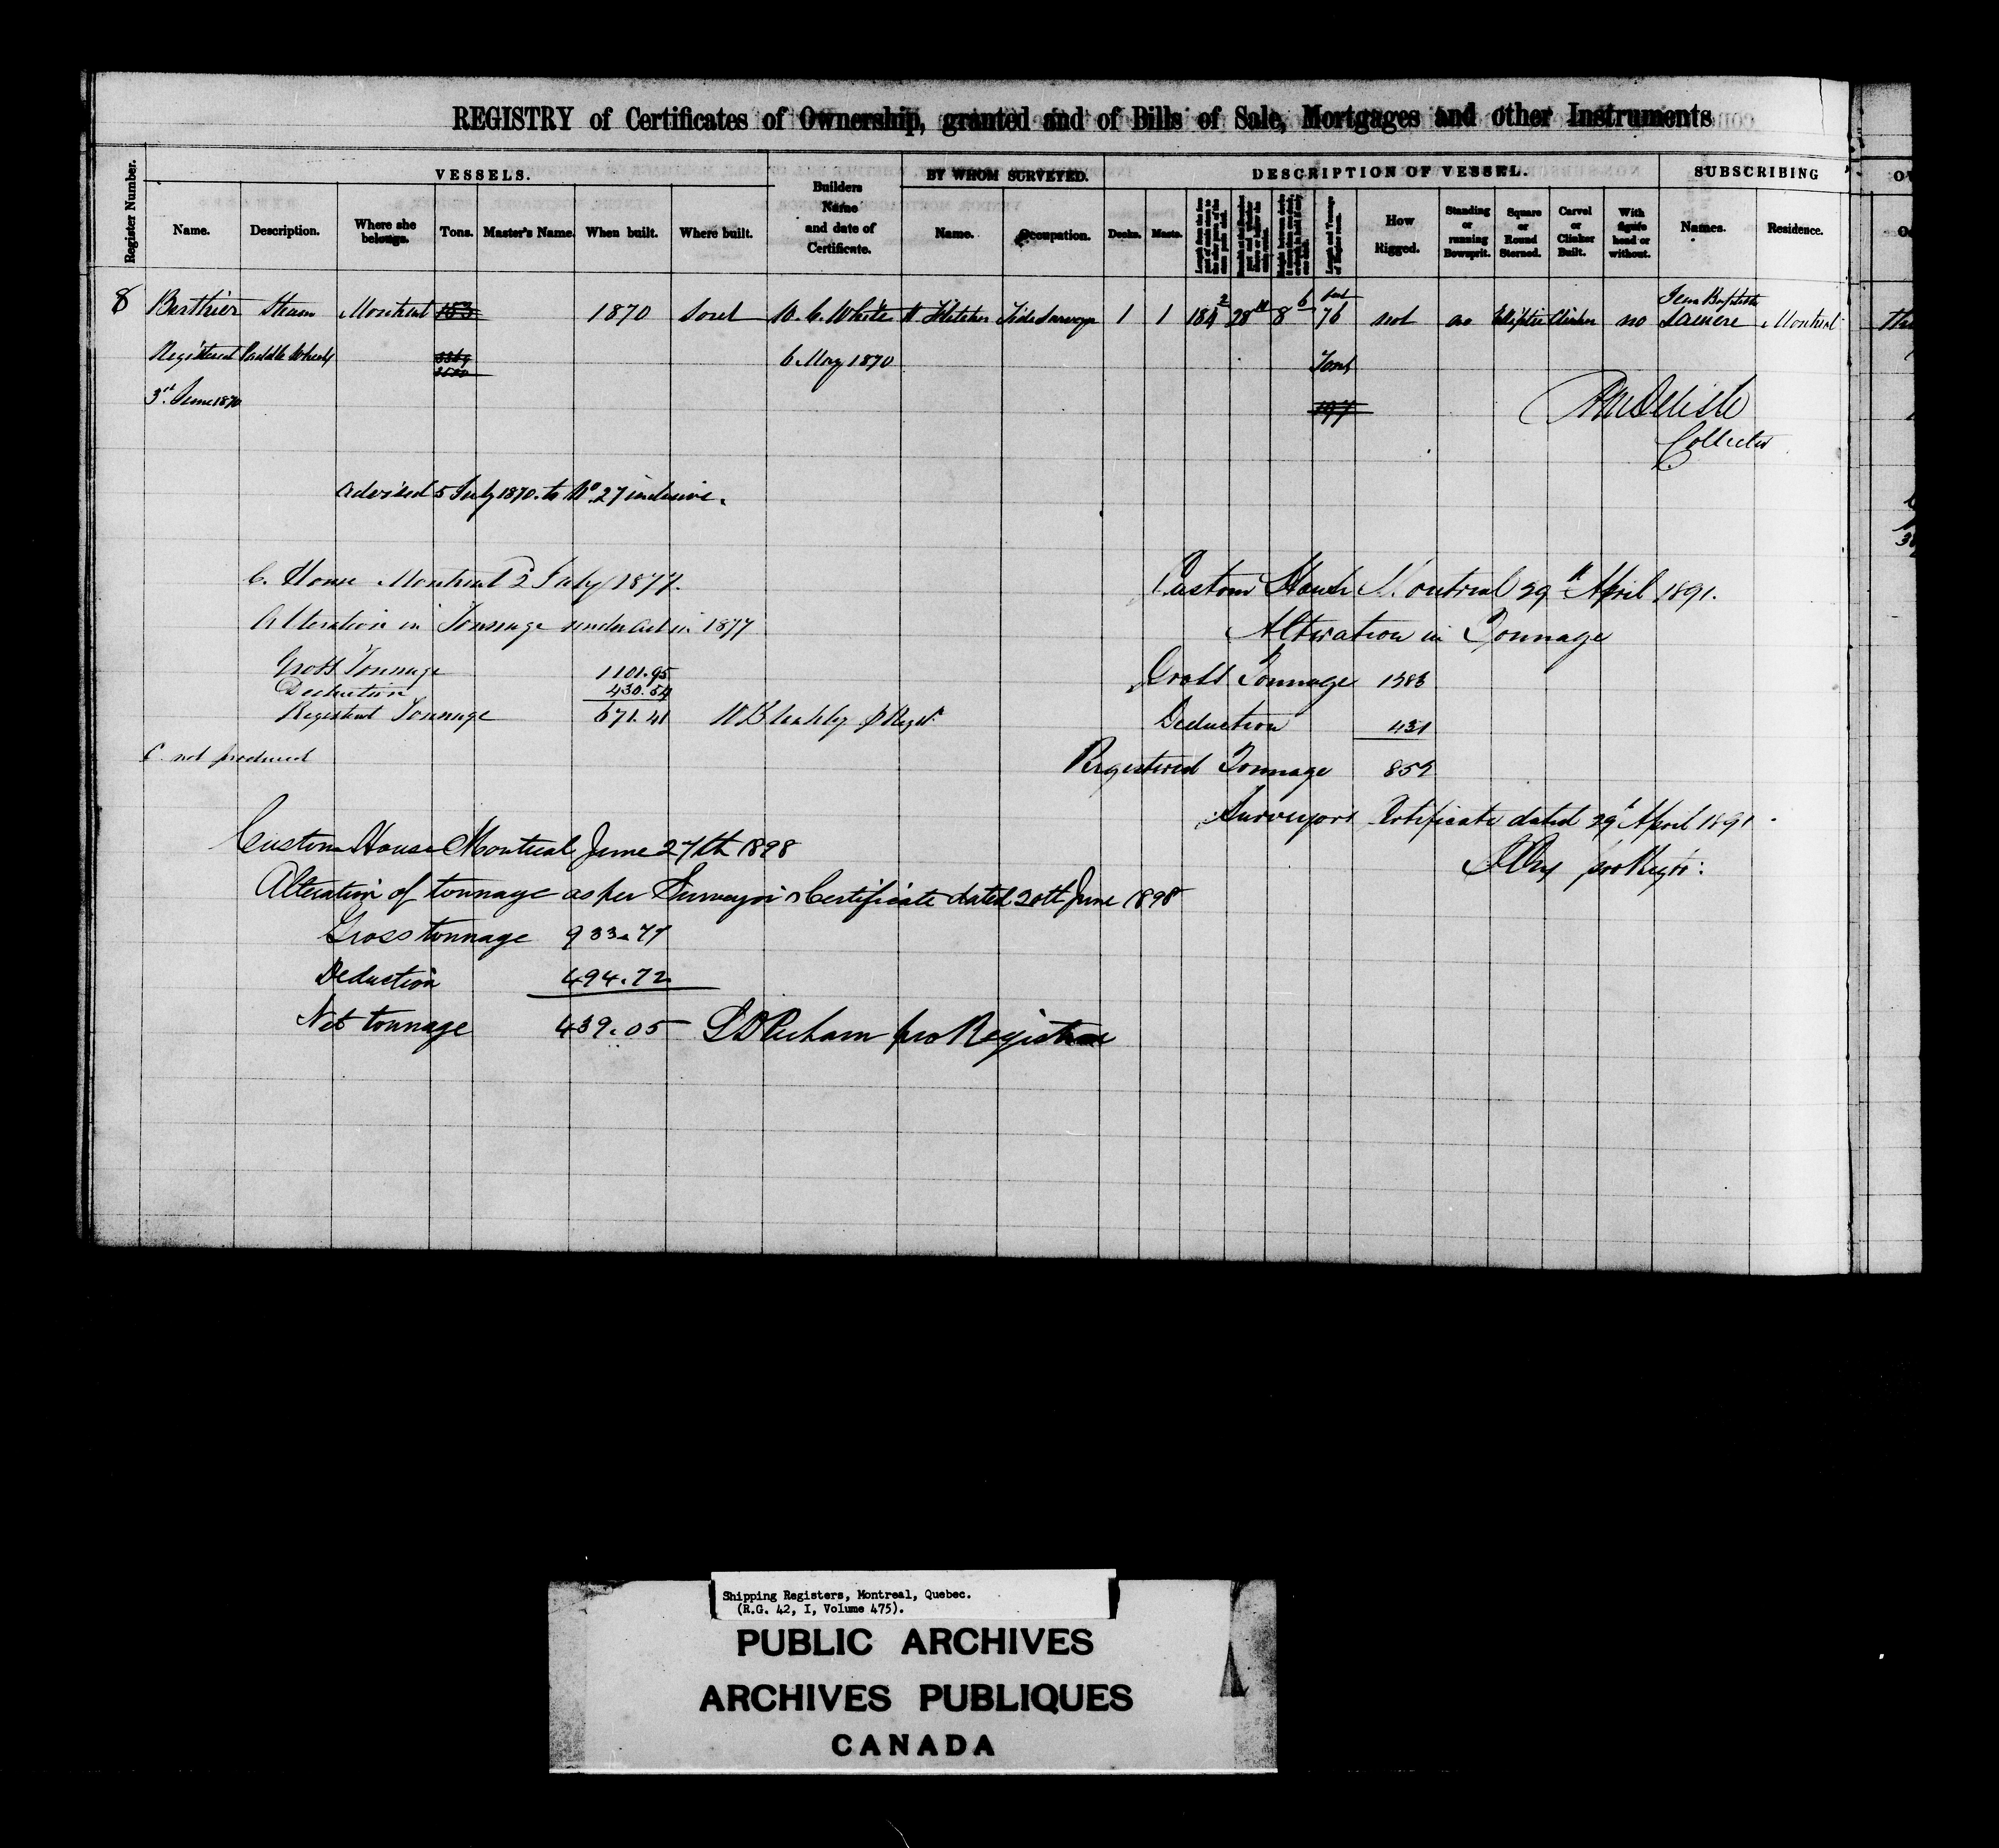 REGISTRY of Certificates of Ownership, granted and of Bills of Sale, Mortgages and other Instruments
Register Number.
VESSELS.
Builders Name and date of Certificate.
BY WHOM SURVEYED.
DESCRIPTION OF VESSEL.
SUBSCRIBING
Name. Description. Where she belongs. Tons. Master's Name. When built. Where built. Name. Occupation. Decks. Masts. How Rigged. Standing or running Bowsprit. Square or Round Sterned. Carvel or Clinker Built. With figure head or without. Names. Residence.
8 Berthier Steam Montreal 153 1870 Sorel W. C. White W Fletcher Tide Surveyor 1 1 184 2 28 8 6 76 not no Eliptic Clinker no Jean Baptiste Lamere Montreal
Registered Paddle Wheels 6 May 1870 Tons
3rd June 1870
Collector
Advised 5 July 1870. to No. 27 inclusive.
C. House Montreal 2 July 1877.
Alteration in Tonnage under act in 1877
Gross Tonnage 1101.95
Deduction 430.54
Registered Tonnage 671.41 W Bleakley p Regr.
C. not produced
Custom House Montreal 29th April 1891.
Alteration in Tonnage
Gross Tonnage
Deduction 431
Registered Tonnage
Surveyors Certificate dated 29th April 1891.
pro Registr:
Custom House Montreal June 27th 1898
Alteration of tonnage as per Surveyor's Certificate dated 20th June 1898
Gross tonnage 933.77
Deduction 494.72
Net tonnage 439.05 pro Registrar
Shipping Registers, Montreal, Quebec.
(R.G. 42, I, Volume 475).
PUBLIC ARCHIVES
ARCHIVES PUBLIQUES
CANADA